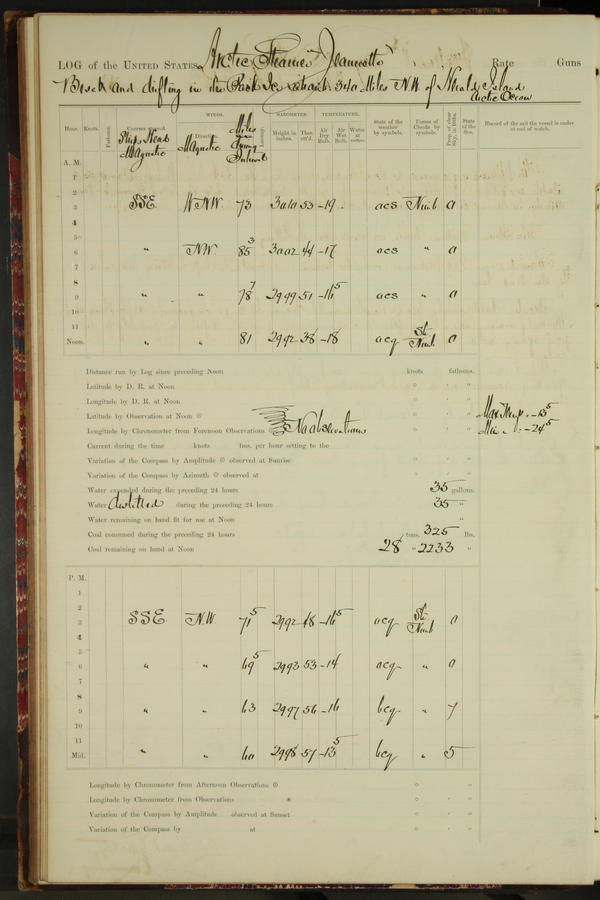 LOG of the UNITED STATES Arctic Steamer Jeannette Rate Guns
Beset and drifting in the Pack Ice about 340 Miles NW of Herald Island
Arctic Ocean
Hour. Knots. Fathoms. Courses steered. WINDS. Direction. Leeway. BAROMETER. Height in inches. Ther. att'd. TEMPERATURE. Air Dry Bulb. Air Wet Bulb. Water at surface. State of the weather by symbols. Forms of Clouds by symbols. Prop. of clear Sky, in 10ths. State of the Sea. Record of the sail the vessel is under at end of watch.
Ship's Head Magnetic Magnetic Miles during Intervals
A. M.
1
2
3 SSE WNW 73 30.10 53 -19 ocs Nimb 0
4
5
6 " NW 85 3 30.02 44 -17 ocs " 0
7
8
9 " " 78 7 29.99 51 -16 5 ocs " 0
10
11
Noon. " " 81 29.92 38 -18 ocq Str Nimb 0
Distance run by Log since preceding Noon knots fathoms.
Latitude by D. R. at Noon ° ' "
Longitude by D. R. at Noon ° ' "
Latitude by Observation at Noon ☉ ° ' " Max Temp. -13 5
Longitude by Chronometer from Forenoon Observations No observations ° ' " Min " -24 5
Current during the time knots fms. per hour setting to the
Variation of the Compass by Amplitude ☉ observed at Sunrise ° ' "
Variation of the Compass by Azimuth ☉ observed at ° ' "
Water expended during the preceding 24 hours 35 gallons.
Water distilled during the preceding 24 hours 35 "
Water remaining on hand fit for use at Noon "
Coal consumed during the preceding 24 hours tons. 325 lbs.
Coal remaining on hand at Noon 28 " 2233 "
P. M.
1
2
3 SSE NW 71 5 29.92 48 -16 5 ocq Str Nimb 0
4
5
6 " " 69 5 29.93 53 -14 ocq " 0
7
8
9 " " 63 29.97 56 -16 bcq " 7
10
11
Mid. " " 60 29.98 57 -13 5 bcq " 5
Longitude by Chronometer from Afternoon Observations ☉ ° ' "
Longitude by Chronometer from Observations * ° ' "
Variation of the Compass by Amplitude observed at Sunset ° ' "
Variation of the Compass by at ° ' "